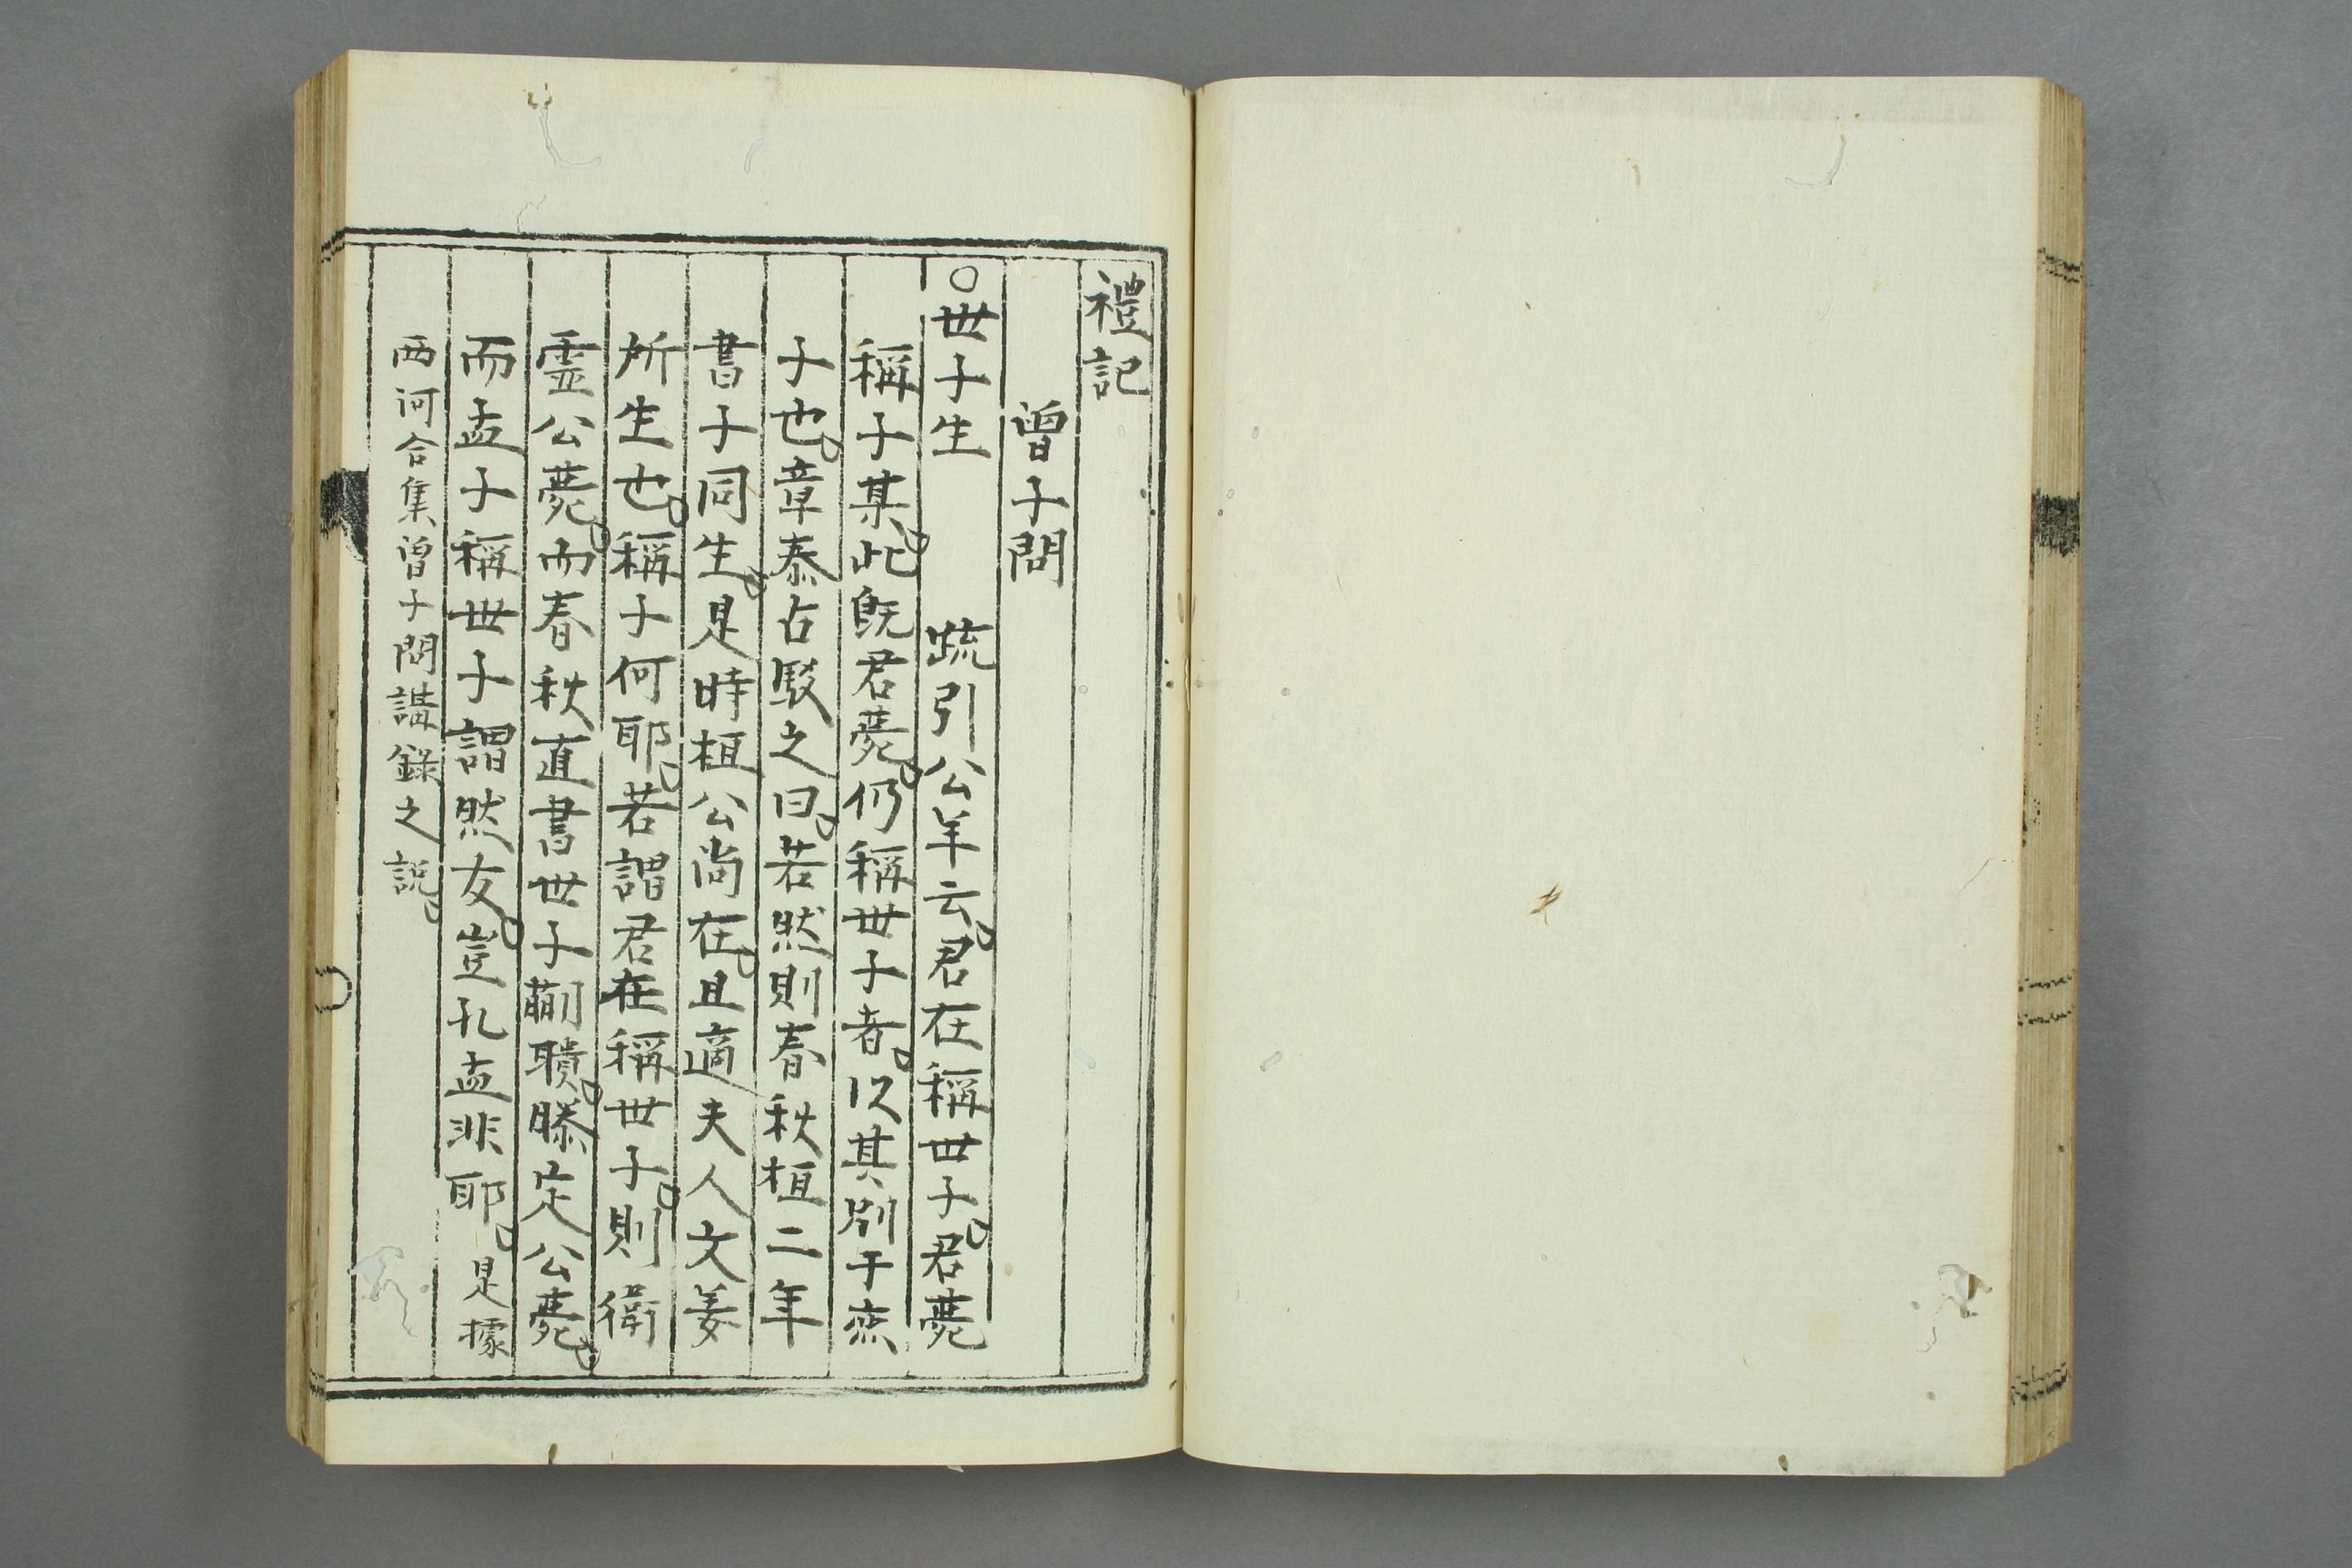 禮記
曾子問
○世子生　疏引公羊云。君在稱世子。君薨
稱子某。此既君薨。仍稱世子者。以其別于庶
子也。章泰占駁之曰。若然則春秋桓二年
書子同生。是時桓公尚在。且適夫人文姜
所生也。稱子何耶。若謂君在稱世子。則衛
霊公薨。而春秋直書世子蒯聵。滕定公薨。
而孟子稱世子謂然友。豈孔孟非耶。是據
西河合集曾子問講錄之説。